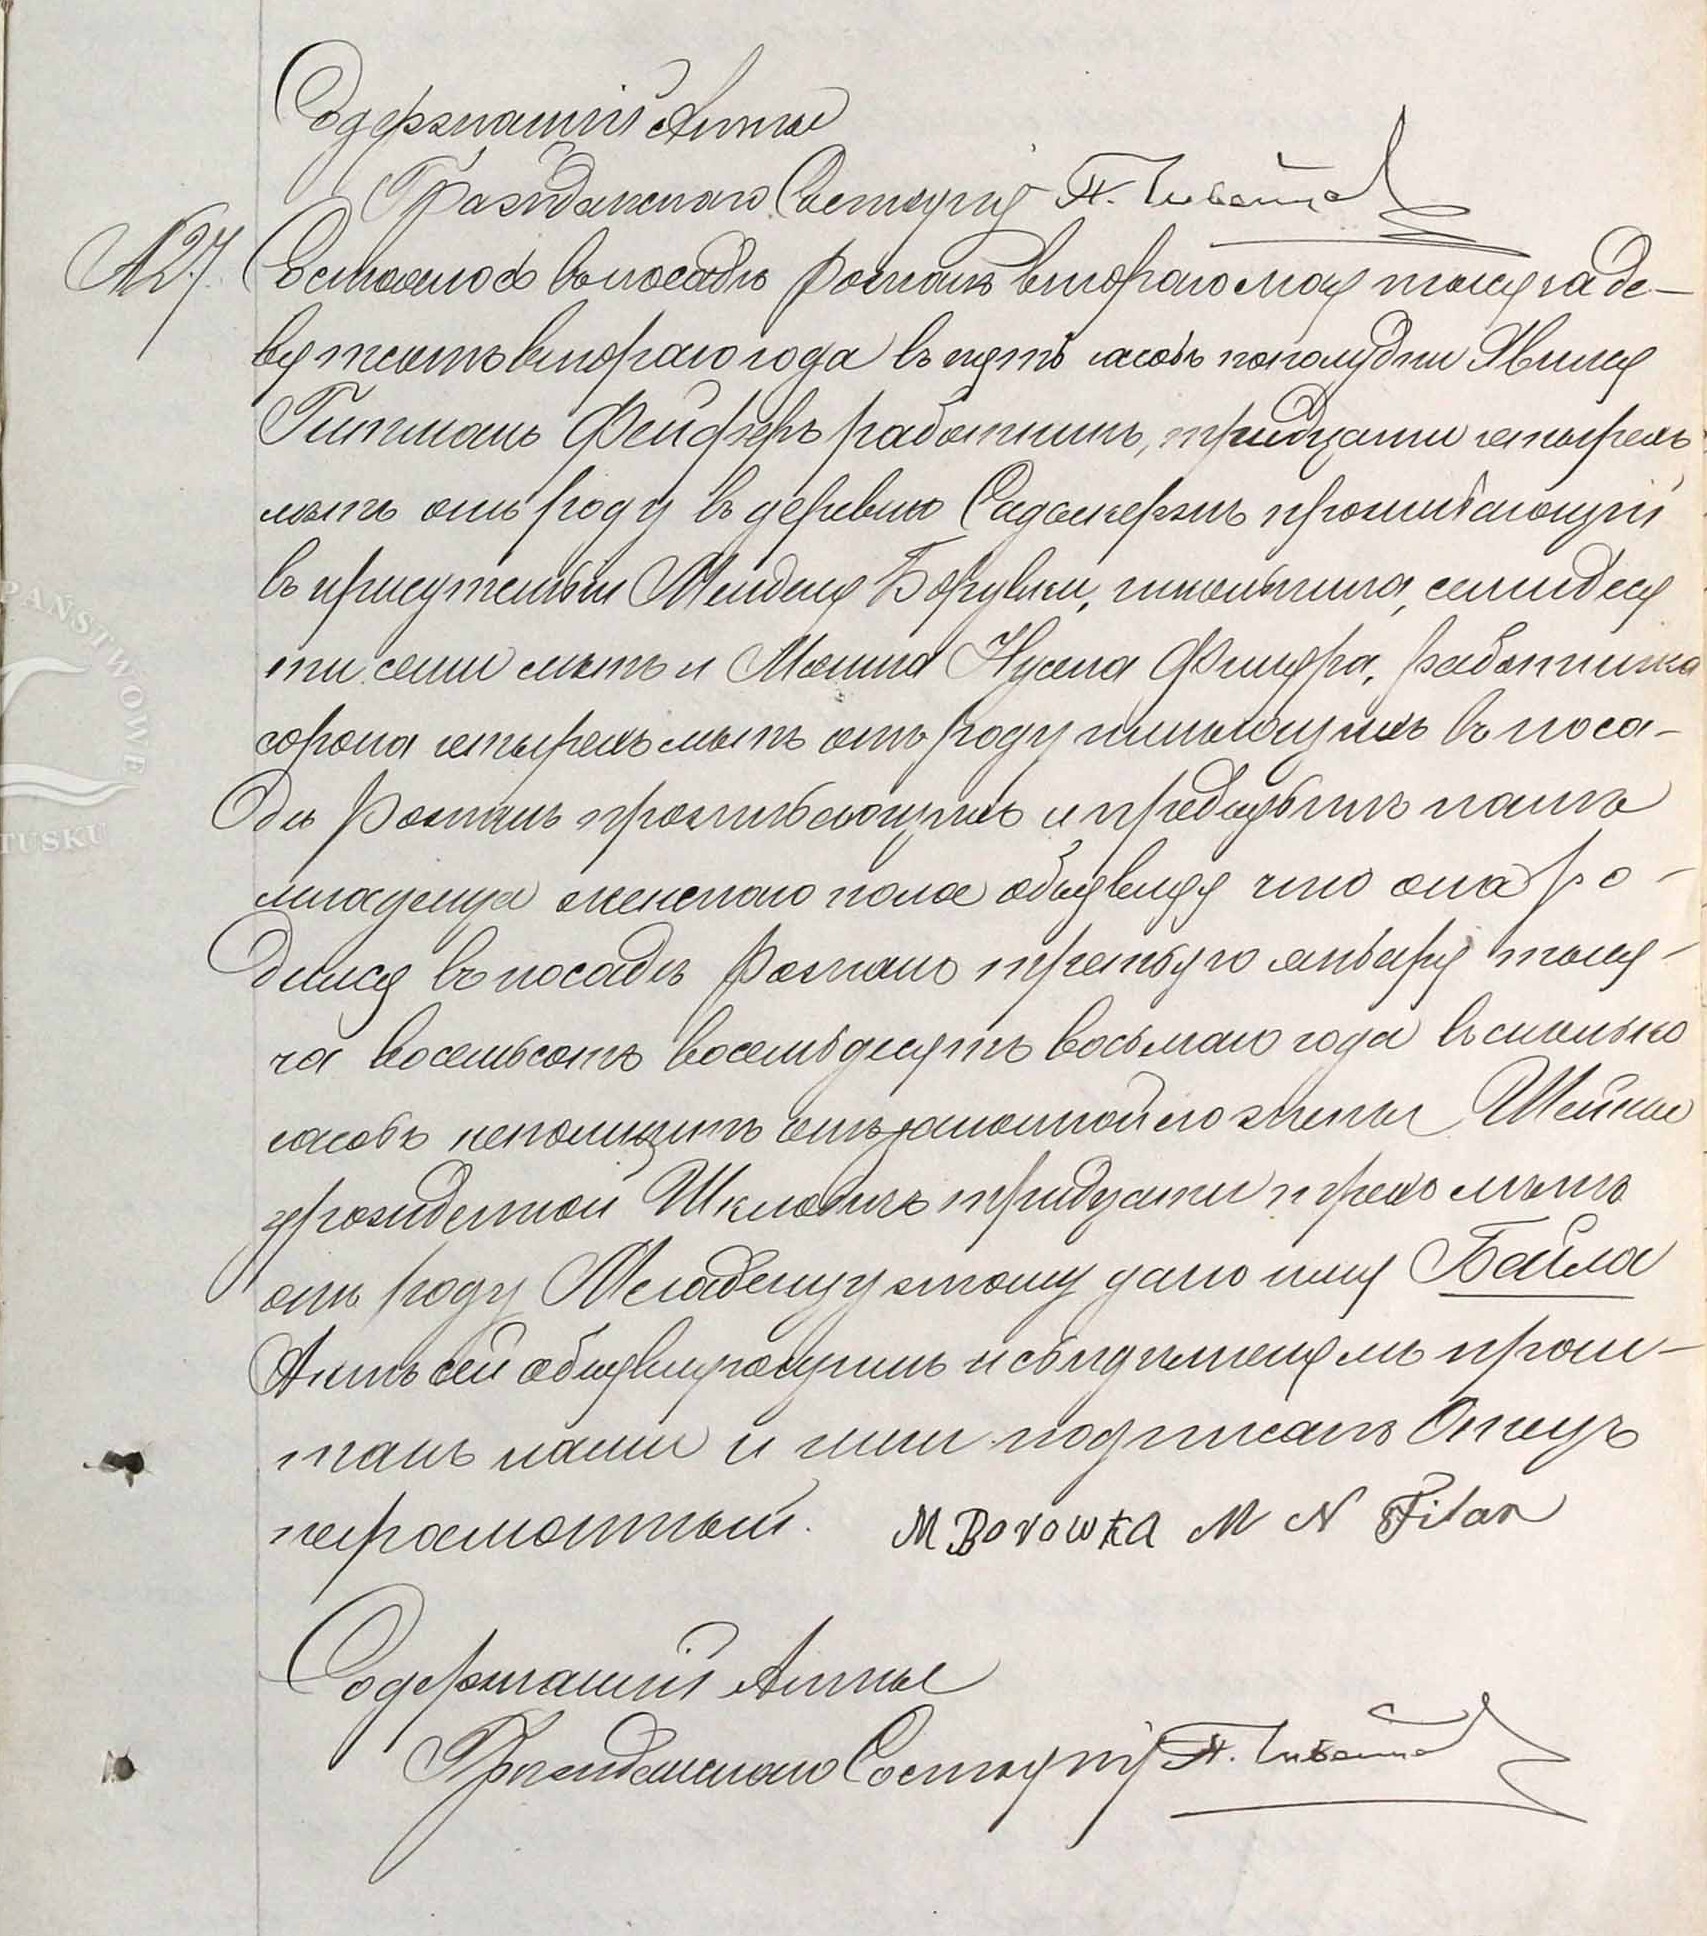 Содержащій Акты
Гражданскаго Состоянія П.
№27. Состоялось въ посадѣ Рожанъ втораго мая тысяча де-
вятьсотъ втораго года въ пять часовъ пополудни Явился
Гитманъ Фейферъ работникъ, тридцати четырехъ
лѣтъ отъ роду въ деревнѣ проживающій
въ присутствіи Менделя Боρувки, школьника, семидеся
ти семи лѣтъ и Мошка Нусена Фишера, работника
сорока четырехъ лѣтъ отъ роду имѣющихъ въ поса-
дѣ Рожанъ проживающихъ и предъявилъ намъ
младенца женскаго пола объявляя что она ро-
дилась въ посадѣ Рожанъ третьяго января тыся-
ча восемьсотъ восемьдесятъ восьмаго года въ сколько
часовъ непомнитъ отъ законной его жены Шейны
урожденной Шкловичъ тридцати трехъ лѣтъ
отъ роду Младенцу этому дано имя Бейла
Актъ сей объявляющимъ и свидѣтелямъ прочи-
танъ нами и ими подписанъ Отецъ
неграмотный. M Borowka M N Fiλar
Содержащій Акты
Гражданскаго Состоянія П.
PAŃSTWOWE
TUSKU